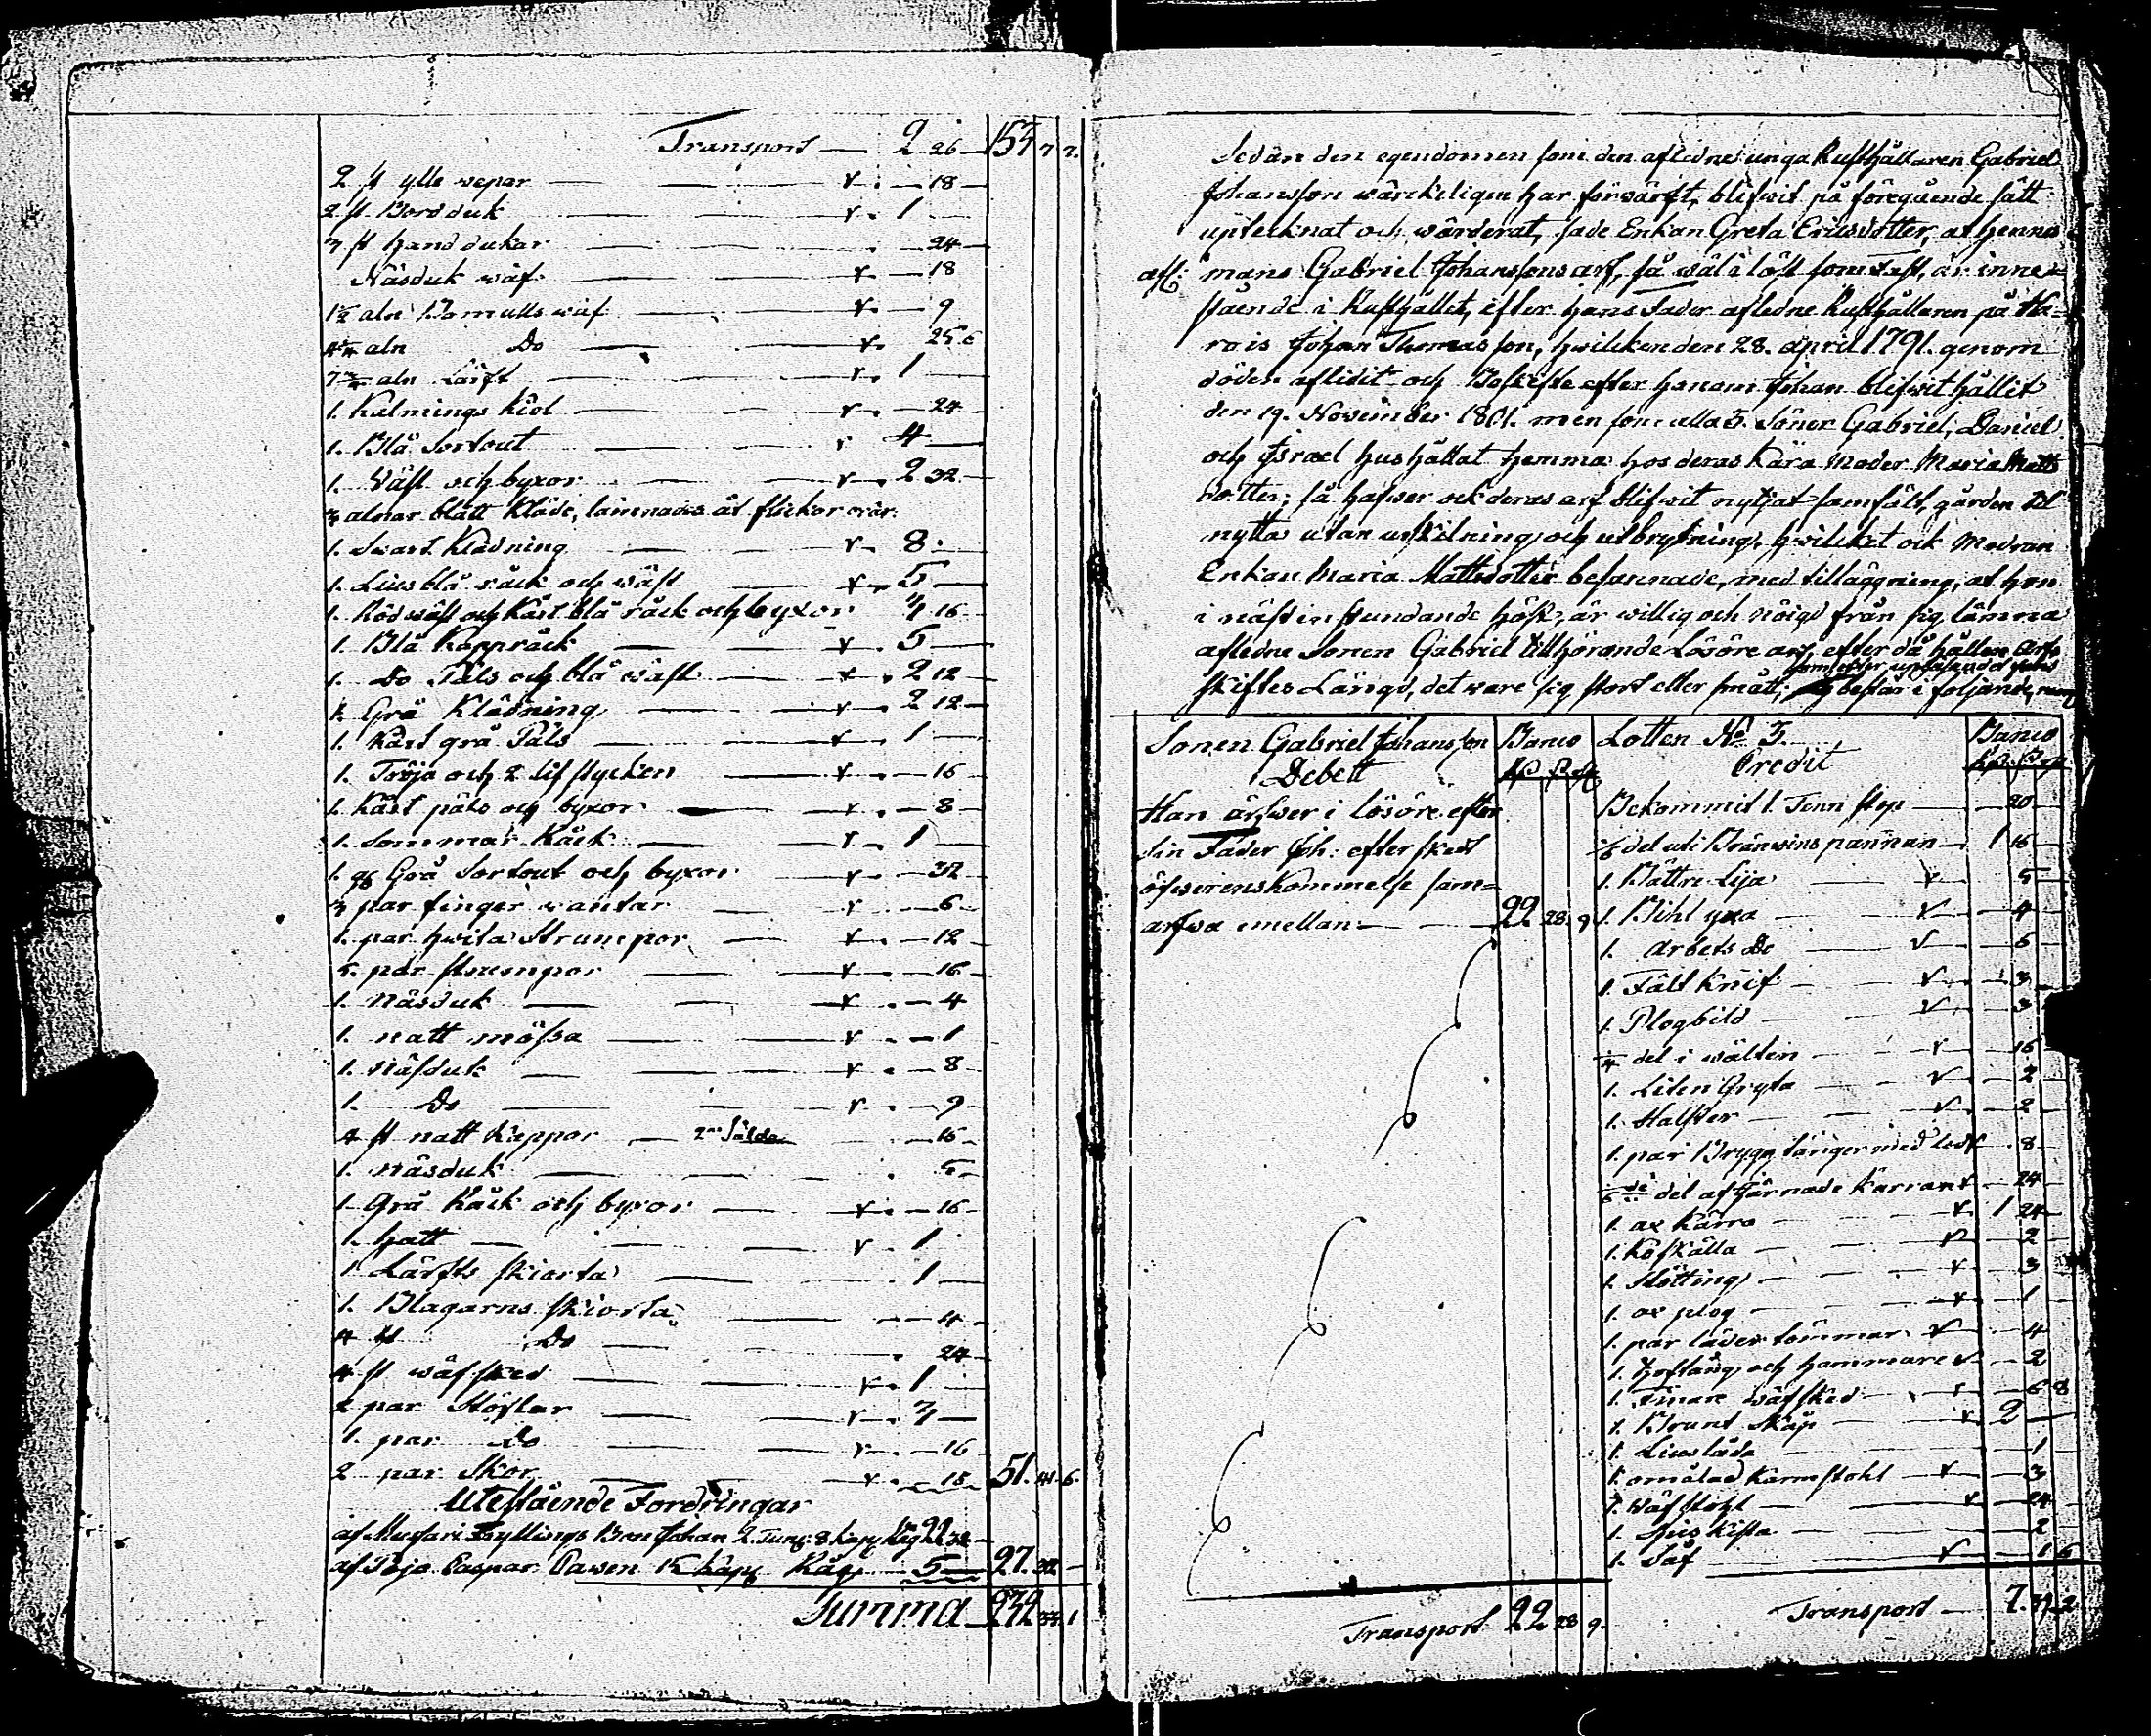 Transport — 2 26 — 153 7 7.
2 st ylle vepor — v. — 18 —
2 st. Bord duk — v. 1 —
3 st hand dukar — 24 —
Näsduk wäf — v. — 18
1½ aln Bomulls wäf — v. — 9
aln Do — v. 25 6
7¾ aln Lärft — v. 1 —
1. Kalmings kiol — v. — 24
1. Blå Sortout — v 4 —
1. Wäst och byxor — v. 2 32
3 alnar blått Kläde, lämnades åt flickor
1. Swart Klädning — v. 8.
1. Lius blå råck och wäst — v. 5 —
1. Röd wäst och Kårt blå råck och byxor 3 16
1. Blå Kappråck — v. 5 —
1. Do Päls och blå wäst — v. 2 12
1. Grå Klädning — v. 2 12
1. Kårt grå Päls — v. 1 —
1. Tröja och 2 lif stycken — v. — 16
1. Kårt päls och byxor — v. — 8
1. Sommar Råck — v. 1 —
1. Grå Sortout och byxor — v. — 32
3 par finger wantar — v. — 6
1. par hwita Strumpor — v. — 12
5. par strumpor — v. — 16
1. näsduk — v. — 4
1. natt mössa — v. — 1
1. näsduk — v. — 8
1. Do — v. — 9
4 st natt kappor — 2ne Sålda — 16
1. näsduk — 5
1. Grå Råck och byxor — v. — 16
1. hatt — v. 1
1 Lärfts skiorta — 1 —
1. Blagarns skiorta — 4
4 st Do — 24
4 st wäfsked — v. 1
2 par Stöflar — v. 3 —
1. par Do — v. — 16
2 par Skor — v. — 18 51. 41. 6.
Utestående Fordringar
af Johan 2. Tun: 8 kapp Råg 22 32
af Caspar 15 kapp Råg 5 — 27. 32 —
Summa 232 33. 1
Sedan den egendomen som den aflidne unga Rusthållaren Gabriel
Johansson wärckeligen har förwärft, blifwit på föregående sätt
uptecknat och wärderat, sade Enkan Greta Ericsdotter, at hennes
afl: mans Gabriel Johanssons arf, så wäl i löst som fast, är inne-
stående i Rusthållet, efter hans Fader afledne Rusthållaren på Ha-
rois Johan Thomasson, hwilcken den 28. april 1791. genom
döden aflidit och Boskifte efter honom Johan blifwit hållit
den 19. November 1801. men som alla 3. Söner Gabriel, Daniel
och Israel hushållat hemma hos deras Kära Moder Maria Matts
dotter; så hafwer ock deras arf blifwit nyttjat samfält, gården til
nytta utan urskilning och utbrytning, hwilcket ock Modren
Enkan Maria Mattsdotter besannade, med tilläggning, at hon
i näst instundande höst, är willig och nöigd från sig lämna
afledne Sonen Gabriel tillhörande Lösöre arf, efter då hållen Arf
skiftes Längd, det ware sig stort eller smått, består i följande, nem
Sonen Gabriel Johansson Banco Lotten No 3. Banco
Debett Credit
Han ärfwer i lösöre efter
sin Fader Joh: efter skedt
öfwerenskommelse sam-
arfwa emellan — 22 28 9
Bekommit 1. Tenn stop — 20 —
del uti Bränwins pannan — 1 16
1. Bättre Lija — v — 5
1. Bihl yxa — v — 4
1. Arbets Do — v — 5
1. Tält Knif — v. — 3
1. Plogbild — v. — 3
¼ del i wälten — v — 16
1. Liten Gryta — v — 2
1. Halster — v — 2
1. par Brygg tänger med — 8
del af Järnade Kärran v — 24
1. ax Kärra — v. 1 24
1. — v — 2
1. Slötting — v — 3
1. ox plog — v — 1
1. par läder tömmar v — 4
1. Hoftång och hammare v — 2
1. Finare wäfsked — v — 6 8
1. Brunt Skåp — v. 2 —
1. Liuslåda — 1
1. omålad Karmstohl — v — 3
1. Wäfstohl — v — 24
1. kista — 2
1. Såf — v — 1 6
Transport 22 28 9.
Transport — 7. 39. 2